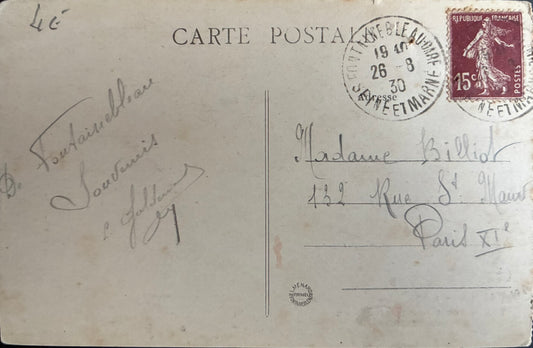 4€
CARTE POSTALE
FONTAINEBLEAU GARE
19 40
26 - 8
30
SEINE ET MARNE
REPUBLIQUE FRANÇAISE
15 c
POSTES
NE ET MARNE
Adresse
De Fontainebleau
Souvenirs
Madame Billiot
132 Rue St Maur
Paris XIe